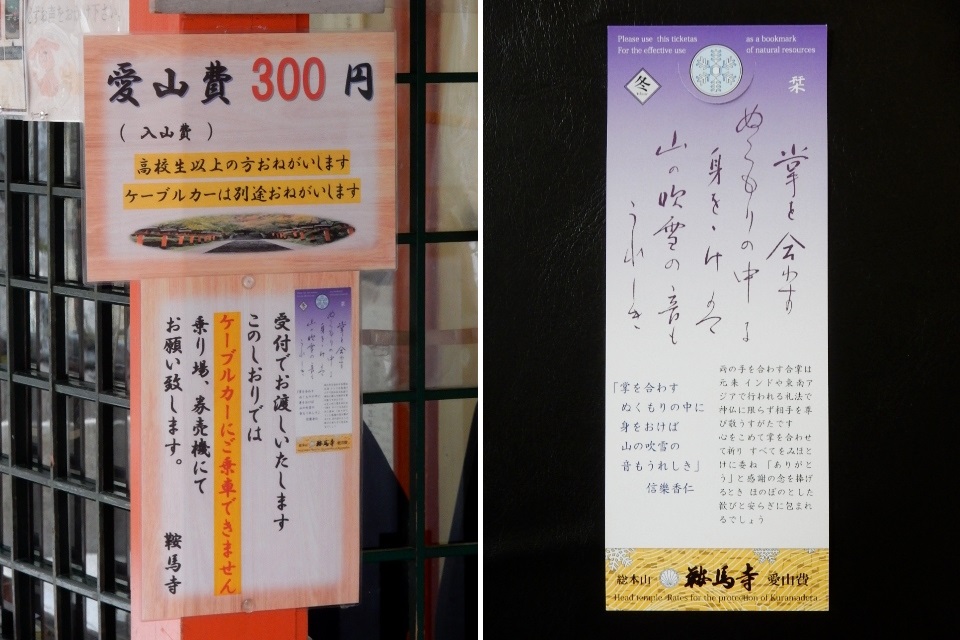 愛山費 300 円
( 入山費 )
高校生以上の方おねがいします
ケーブルカーは別途おねがいします
受付でお渡しいたします
このしおりでは
ケーブルカーにご乗車できません
乗り場、券売機にて
お願い致します。
鞍馬寺
Please use this ticketas
For the effective use
as a bookmark
of natural resources
冬
栞
掌を合わす
ぬくもりの中に
身をおけば
山の吹雪の音も
うれしき
両の手を合わす合掌は
元来 インドや東南ア
ジアで行われる礼法で
神仏に限らず相手を尊
び敬うすがたです
心をこめて掌を合わせ
て祈り すべてをみほと
けに委ね 「ありがと
う」と感謝の念を捧げ
るとき ほのぼのとした
歓びと安らぎに包まれ
るでしょう
「掌を合わす
ぬくもりの中に
身をおけば
山の吹雪の
音もうれしき」
信樂香仁
総本山 鞍馬寺 愛山費
Head temple Rates for the protection of Kuramadera